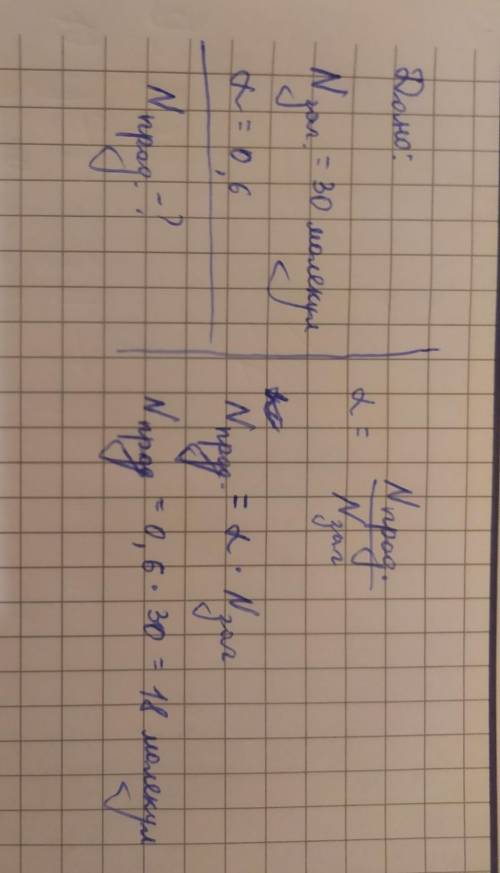 Дано:
N зал. = 30 молекул
α = 0,6
N прод. - ?
α = N прод. / N зал
N прод. = α · N зал
N прод = 0,6 · 30 = 18 молекул